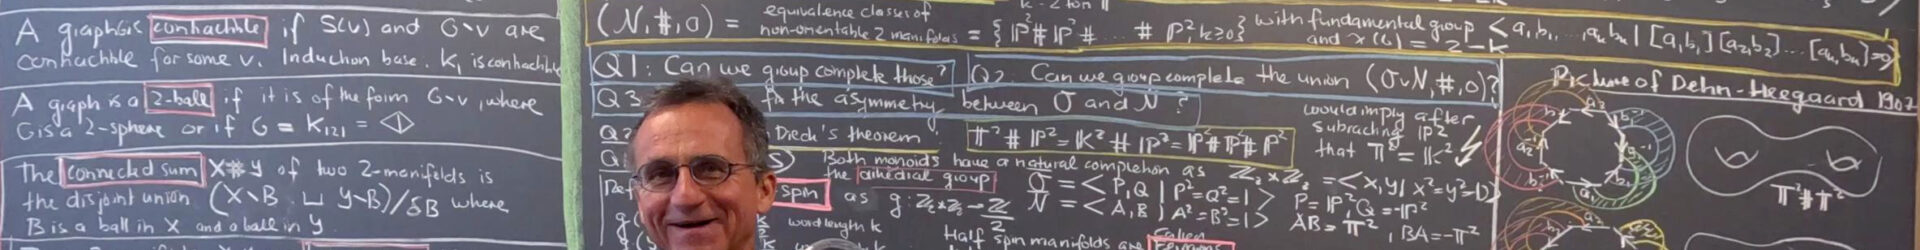 A graph is contractible if S(v) and G\v are
contractible for some v. Induction base. K₁ is contractible
A graph is a 2-ball if it is of the form G\v, where
G is a 2-sphere or if G = K₁₂₁ =
The connected sum X#Y of two 2-manifolds is
the disjoint union (X\B ⊔ Y\B)/δB where
B is a ball in X and a ball in Y.
(N,#,0) = equivalence classes of
non-orientable 2 manifolds = {ℙ²#ℙ²# ... #ℙ², k≥0} with fundamental group <a₁b₁, ..., aₖbₖ | [a₁b₁][a₂b₂]...[aₖbₖ]=0>
and χ(G) = 2-k
Q1: Can we group complete those? Q2: Can we group complete the union (O∪N,#,0)?
Q3 the asymmetry between O and N?
Q2 Dieck's theorem 𝕋²#ℙ²=𝕂²#ℙ²=ℙ²#ℙ²#ℙ²
would imply after
subtracting ℙ²
that 𝕋²=𝕂²
Both monoids have a natural completion as ℤ₂⋆ℤ₂ = <x,y| x²=y²=1>
the dihedral group
O = <P,Q | P²=Q²=1> P=ℙ², Q=-ℙ²
N = <A,B | A²=B²=1> AB=𝕋², BA=-𝕋²
spin as g: ℤ₂⋆ℤ₂→ℤ/2
word length k
Half spin manifolds are called
Fermions
Picture of Dehn-Heegaard 1907
a₂
b₂
a₁
b₁
𝕋²#𝕋²